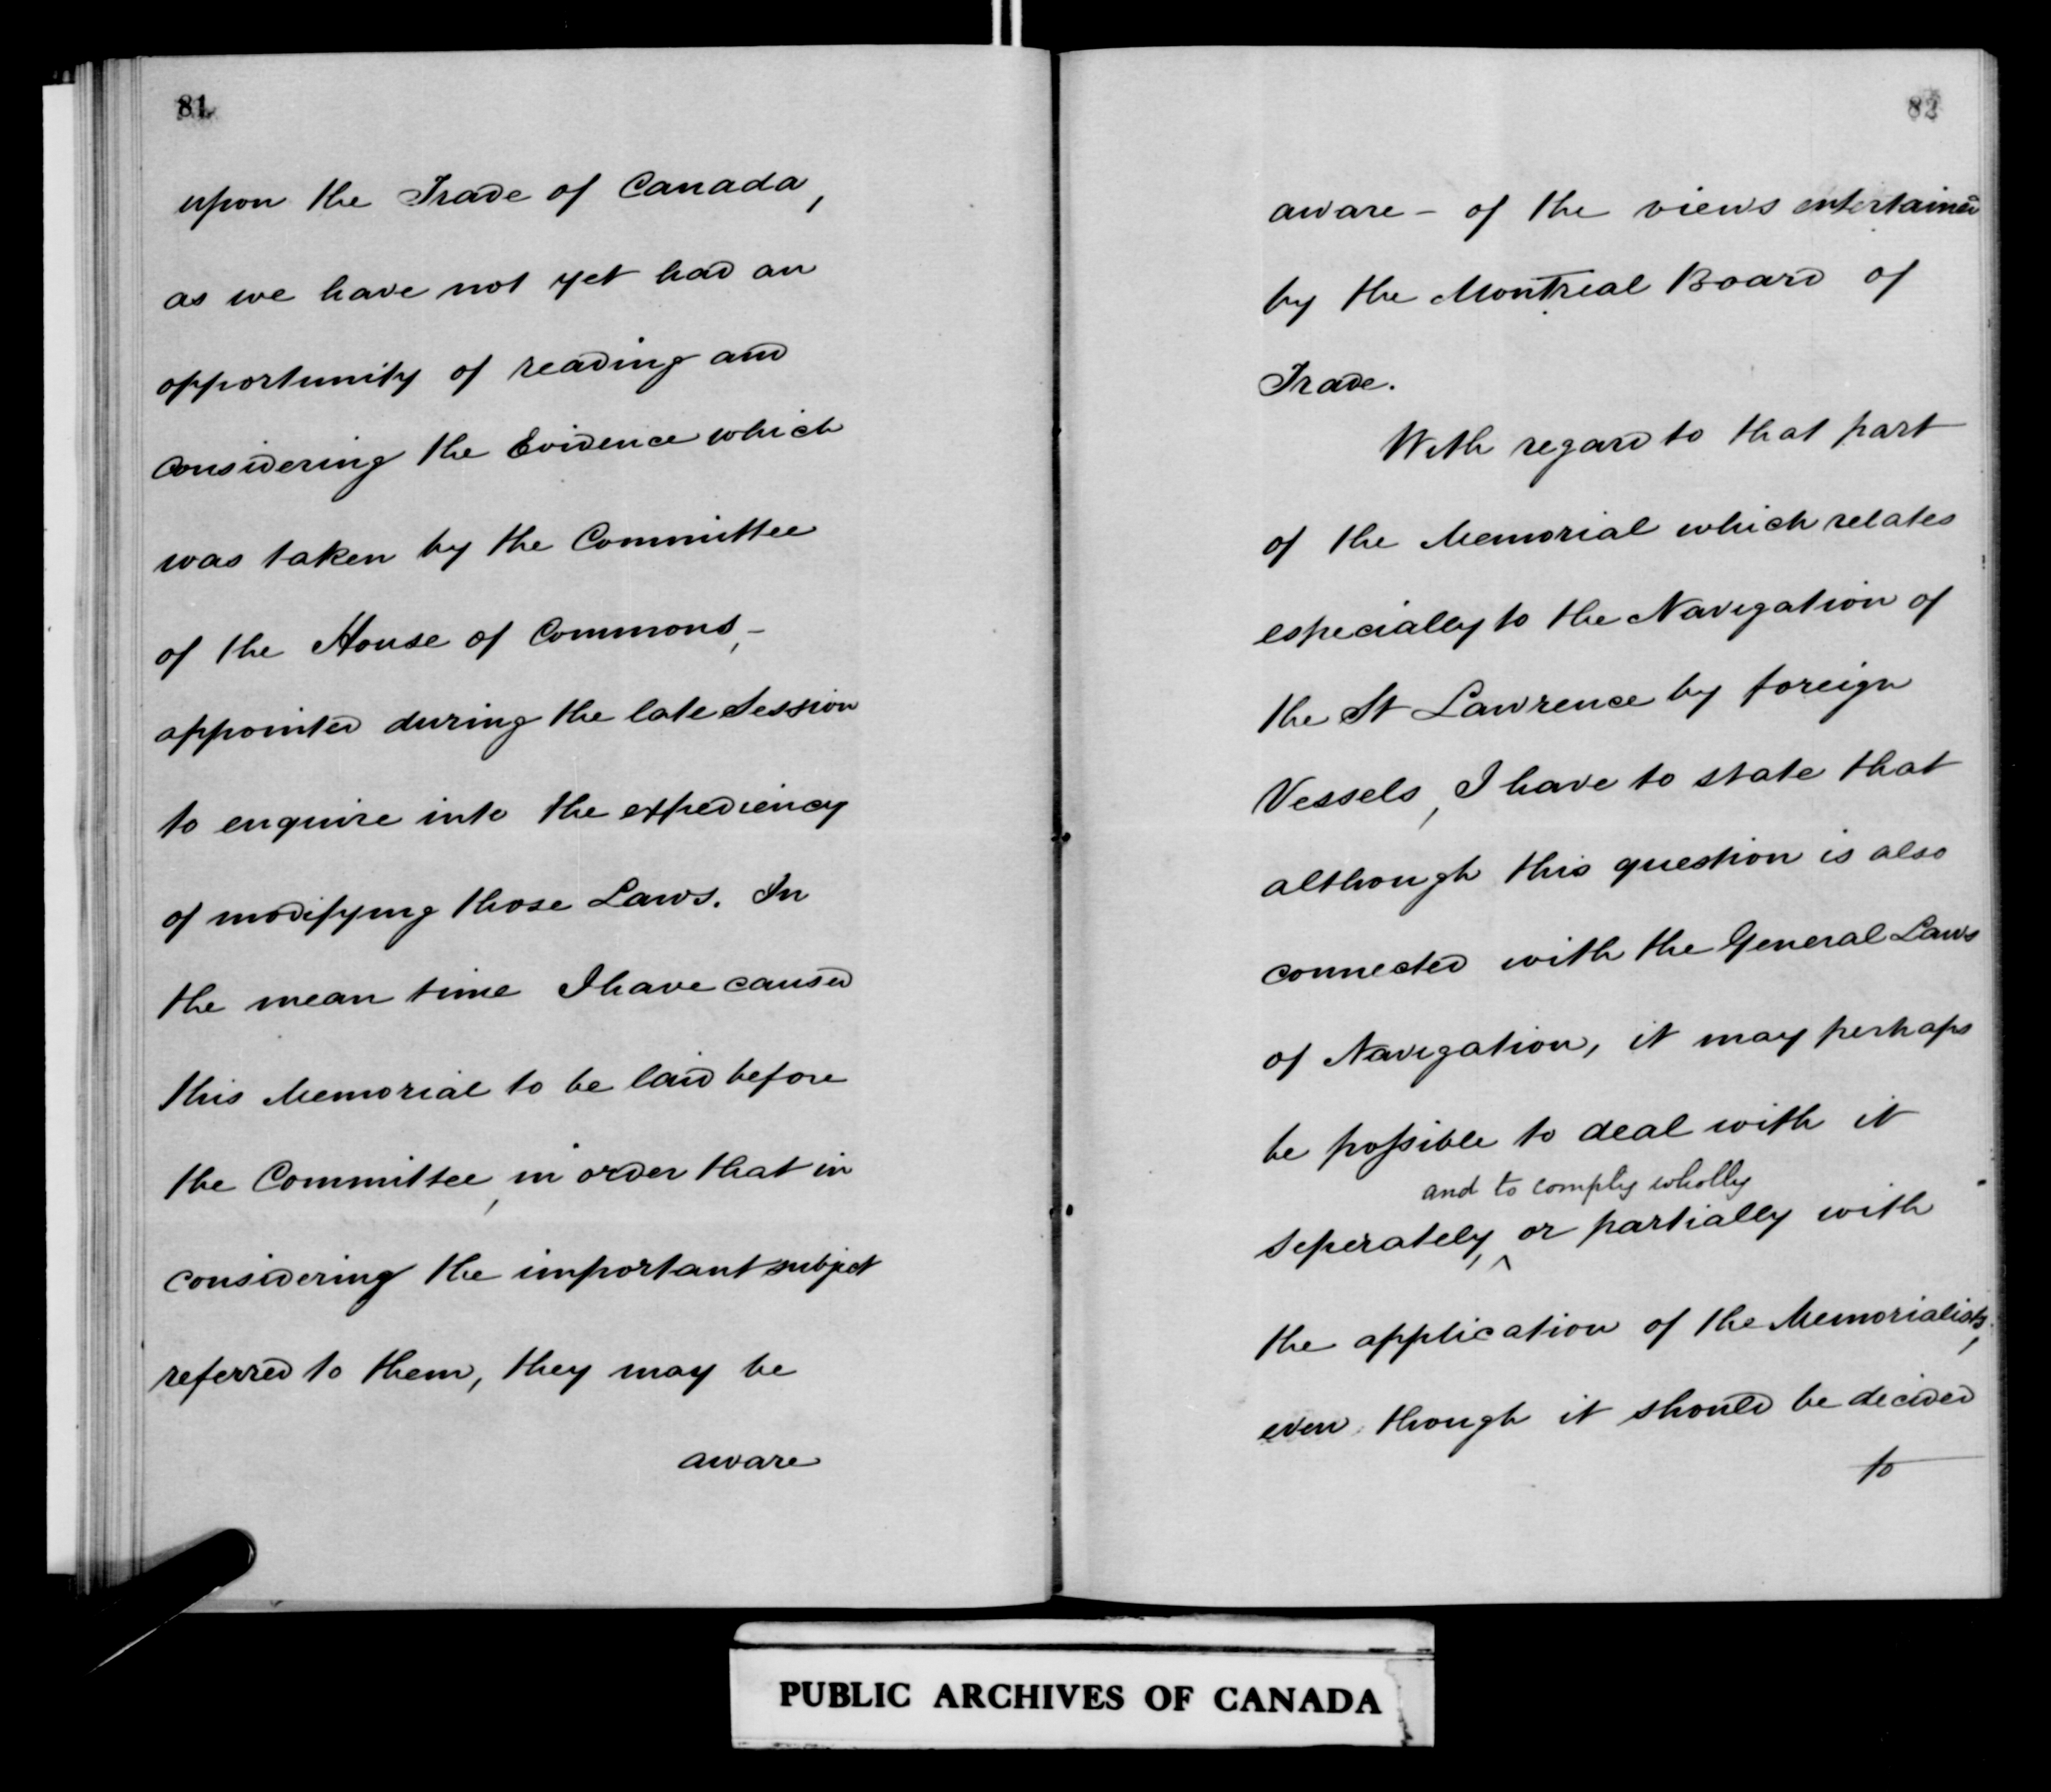 81
upon the Trade of Canada,
as we have not yet had an
opportunity of reading and
considering the Evidence which
was taken by the Committee
of the House of Commons, -
appointed during the late Session
to enquire into the expediency
of modifying those Laws. In
the mean time I have caused
this Memorial to be laid before
the Committee, in order that in
considering the important subject
referred to them, they may be
aware
82
aware - of the views entertained
by the Montreal Board of
Trade.
With regard to that part
of the Memorial which relates
especially to the Navigation of
the St Lawrence by foreign
Vessels, I have to state that
although this question is also
connected with the General Laws
of Navigation, it may perhaps
be possible to deal with it
and to comply wholly
seperately, ^ or partially with
the application of the Memorialists,
even though it should be decided
to
PUBLIC ARCHIVES OF CANADA